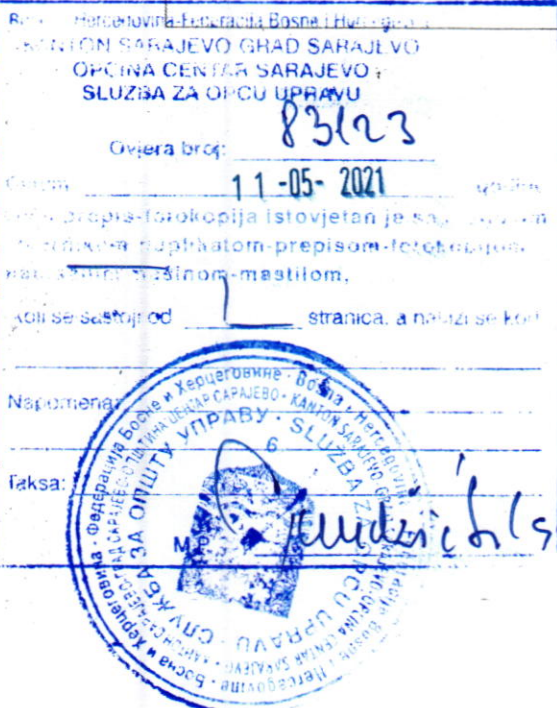 Hercegovina-Federacija Bosne i Hercegovine
KANTON SARAJEVO GRAD SARAJEVO
OPĆINA CENTAR SARAJEVO
SLUŽBA ZA OPĆU UPRAVU
Ovjera broj: 83123
Datum 11-05-2021
prepis-fotokopija istovjetan je sa
duplikatom-prepisom-fotokopijom
mastilom,
koji se sastoji od 1 stranica, a nalazi se kod
Napomena:
Taksa:
Босна и Херцеговина - Федерација Босне и Херцеговине - Bosna i Hercegovina - Federacija Bosne i Hercegovine
КАНТОН САРАЈЕВО - ГРАД САРАЈЕВО - ОПШТИНА ЦЕНТАР САРАЈЕВО - KANTON SARAJEVO - GRAD SARAJEVO - OPĆINA CENTAR SARAJEVO
СЛУЖБА ЗА ОПШТУ УПРАВУ - SLUŽBA ZA OPĆU UPRAVU
6